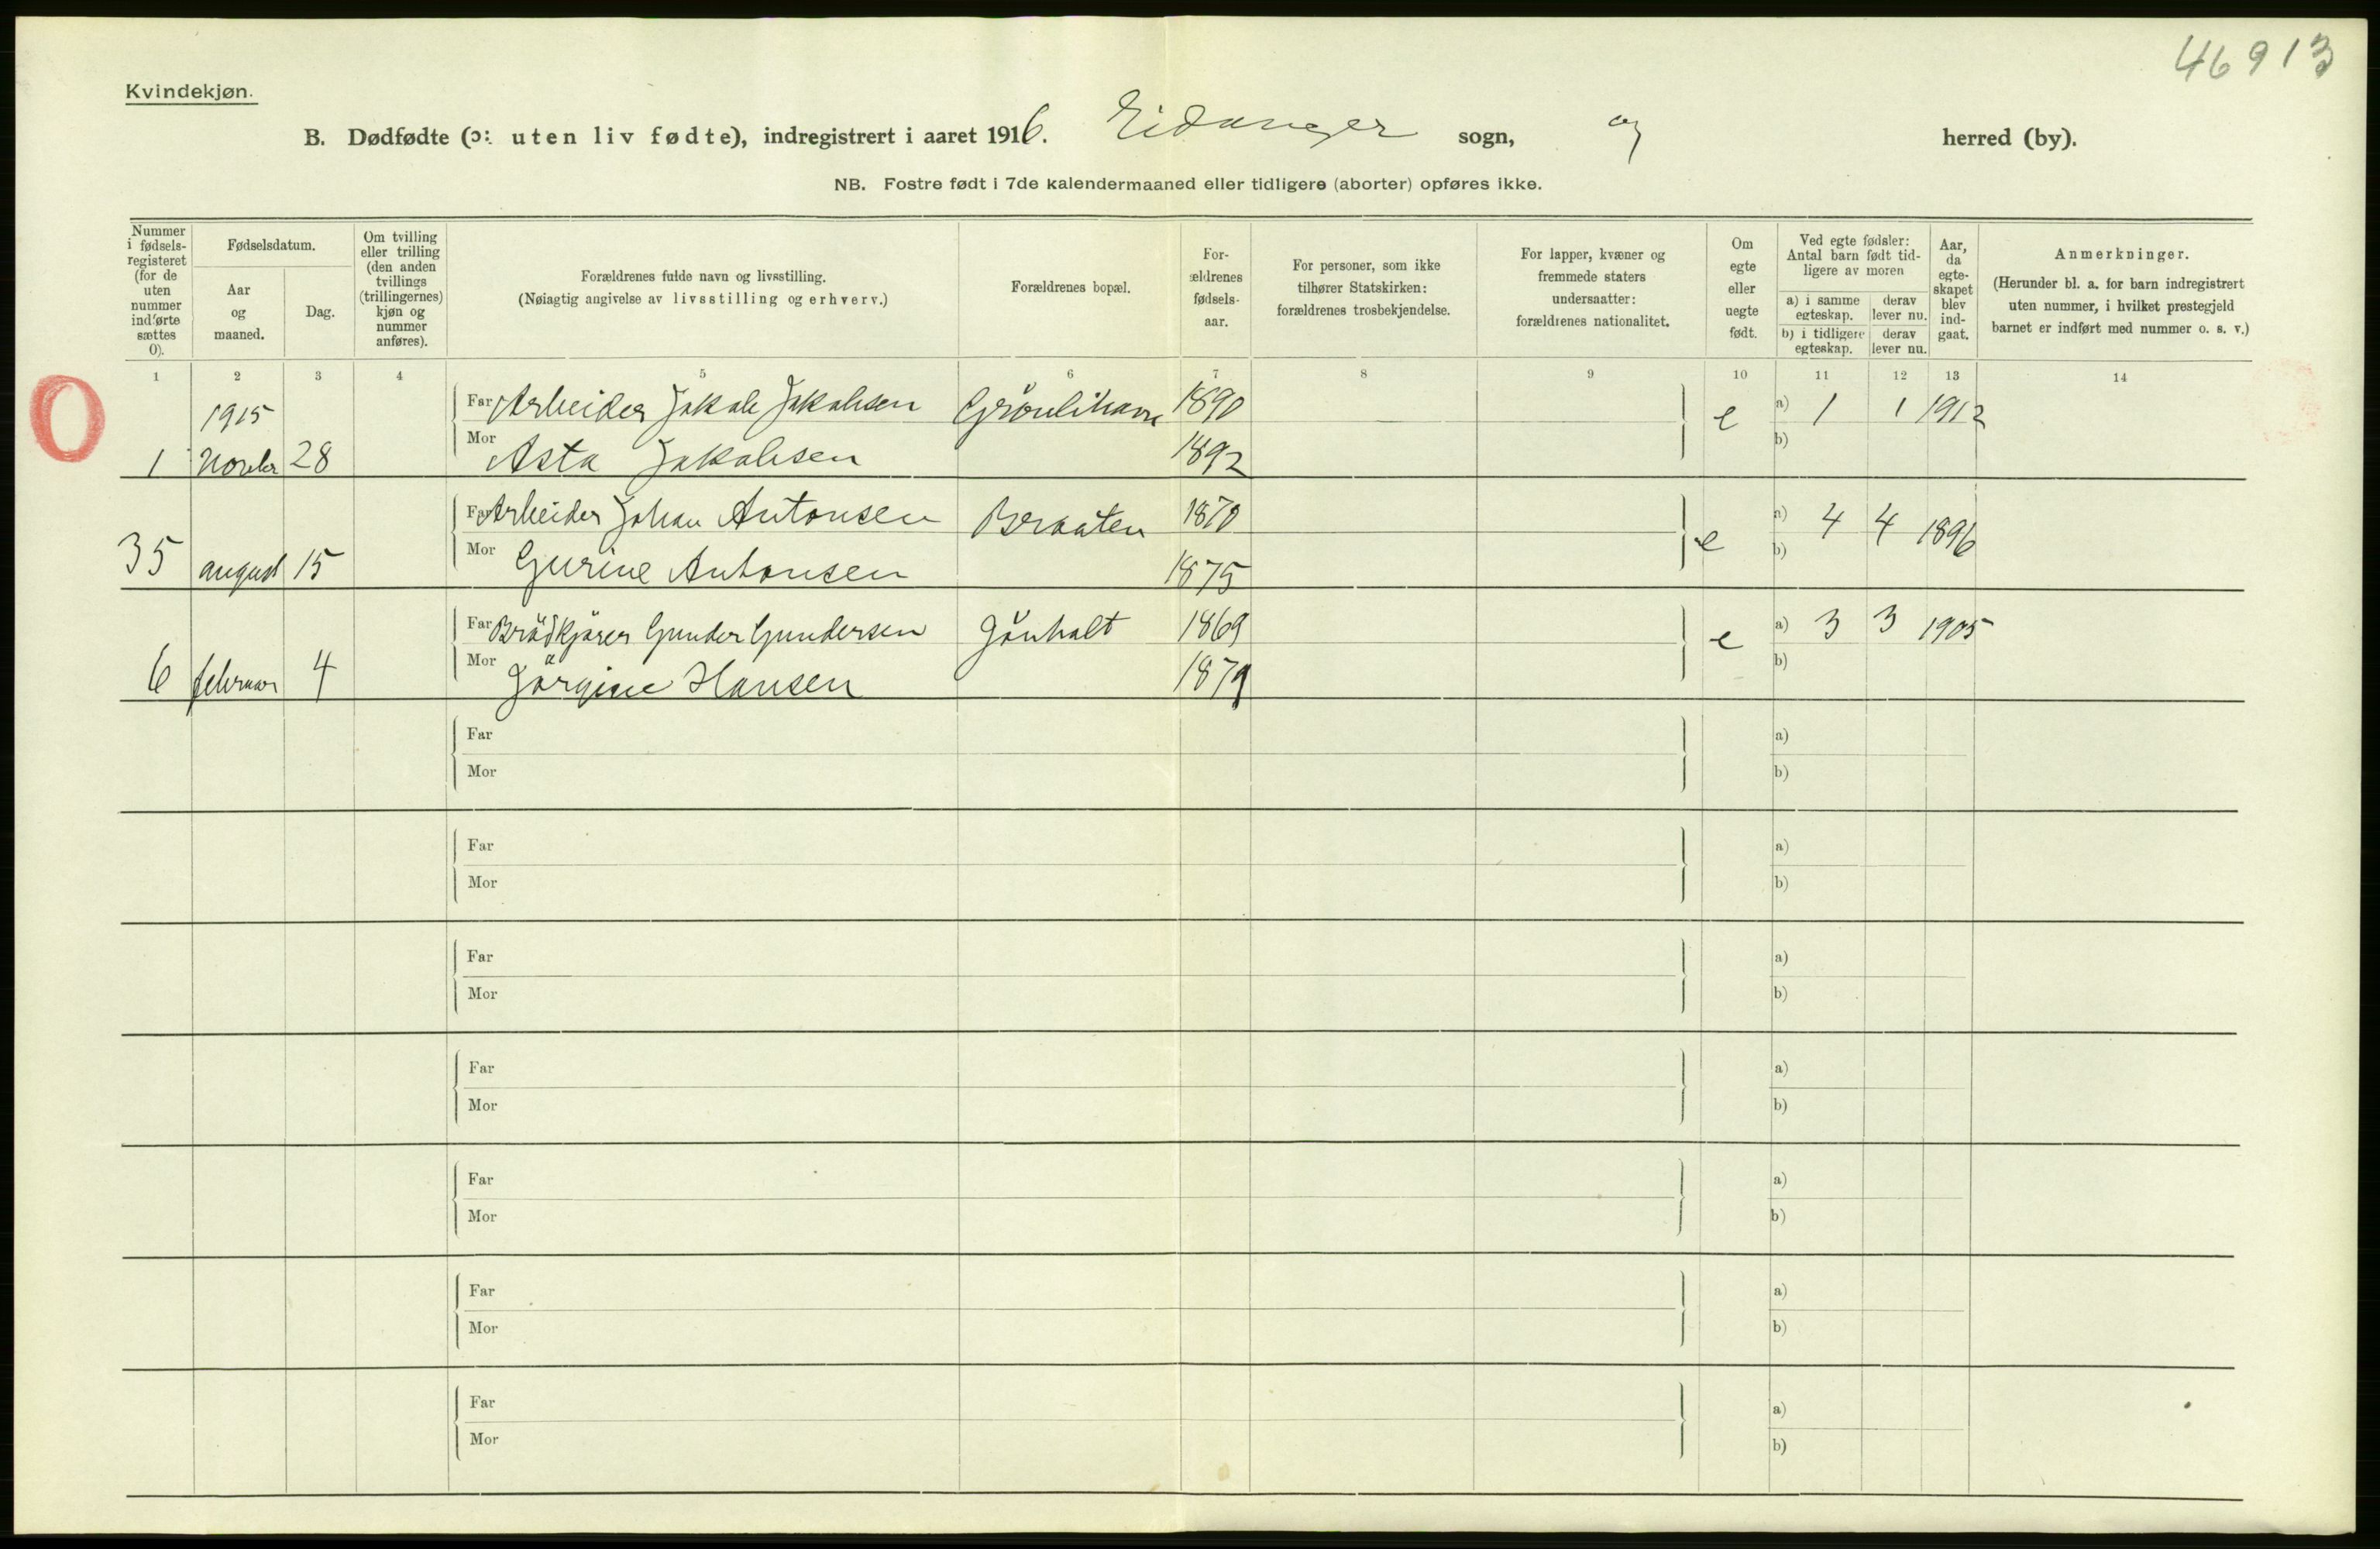 46913
Kvindekjøn.
B. Dødfødte (ɔ: uten liv fødte), indregistrert i aaret 1916. Eidanger sogn, og herred (by).
NB. Fostre født i 7de kalendermaaned eller tidligere (aborter) opføres ikke.
Nummer i fødsels-registeret (for de uten nummer indførte sættes 0).
Fødselsdatum.
Aar og maaned.
Dag.
Om tvilling eller trilling (den anden tvillings (trillingernes) kjøn og nummer anføres).
Forældrenes fulde navn og livsstilling.
(Nøiagtig angivelse av livsstilling og erhverv.)
Forældrenes bopæl.
For-ældrenes fødsels-aar.
For personer, som ikke tilhører Statskirken: forældrenes trosbekjendelse.
For lapper, kvæner og fremmede staters undersaatter: forældrenes nationalitet.
Om egte eller uegte født.
Ved egte fødsler: Antal barn født tid-ligere av moren
a) i samme egteskap.
derav lever nu.
b) i tidligere egteskap.
derav lever nu.
Aar, da egte-skapet blev ind-gaat.
Anmerkninger.
(Herunder bl. a. for barn indregistrert uten nummer, i hvilket prestegjeld barnet er indført med nummer o. s. v.)
1 2 3 4 5 6 7 8 9 10 11 12 13 14
O
1915
Far Arbeider Jakob Jakobsen 1890 e a) 1 1 1912
1 Novbr 28 Mor Asta Jakobsen 1892 b)
Far Arbeider Johan Antonsen Braaten 1870 e a) 4 4 1896
35 august 15 Mor Gurine Antonsen 1875 b)
Far Brödkjörer Gunder Gundersen Gönholt 1869 e a) 3 3 1905
6 februar 4 Mor Jörgine Hansen 1879 b)
Far a)
Mor b)
Far a)
Mor b)
Far a)
Mor b)
Far a)
Mor b)
Far a)
Mor b)
Far a)
Mor b)
Far a)
Mor b)